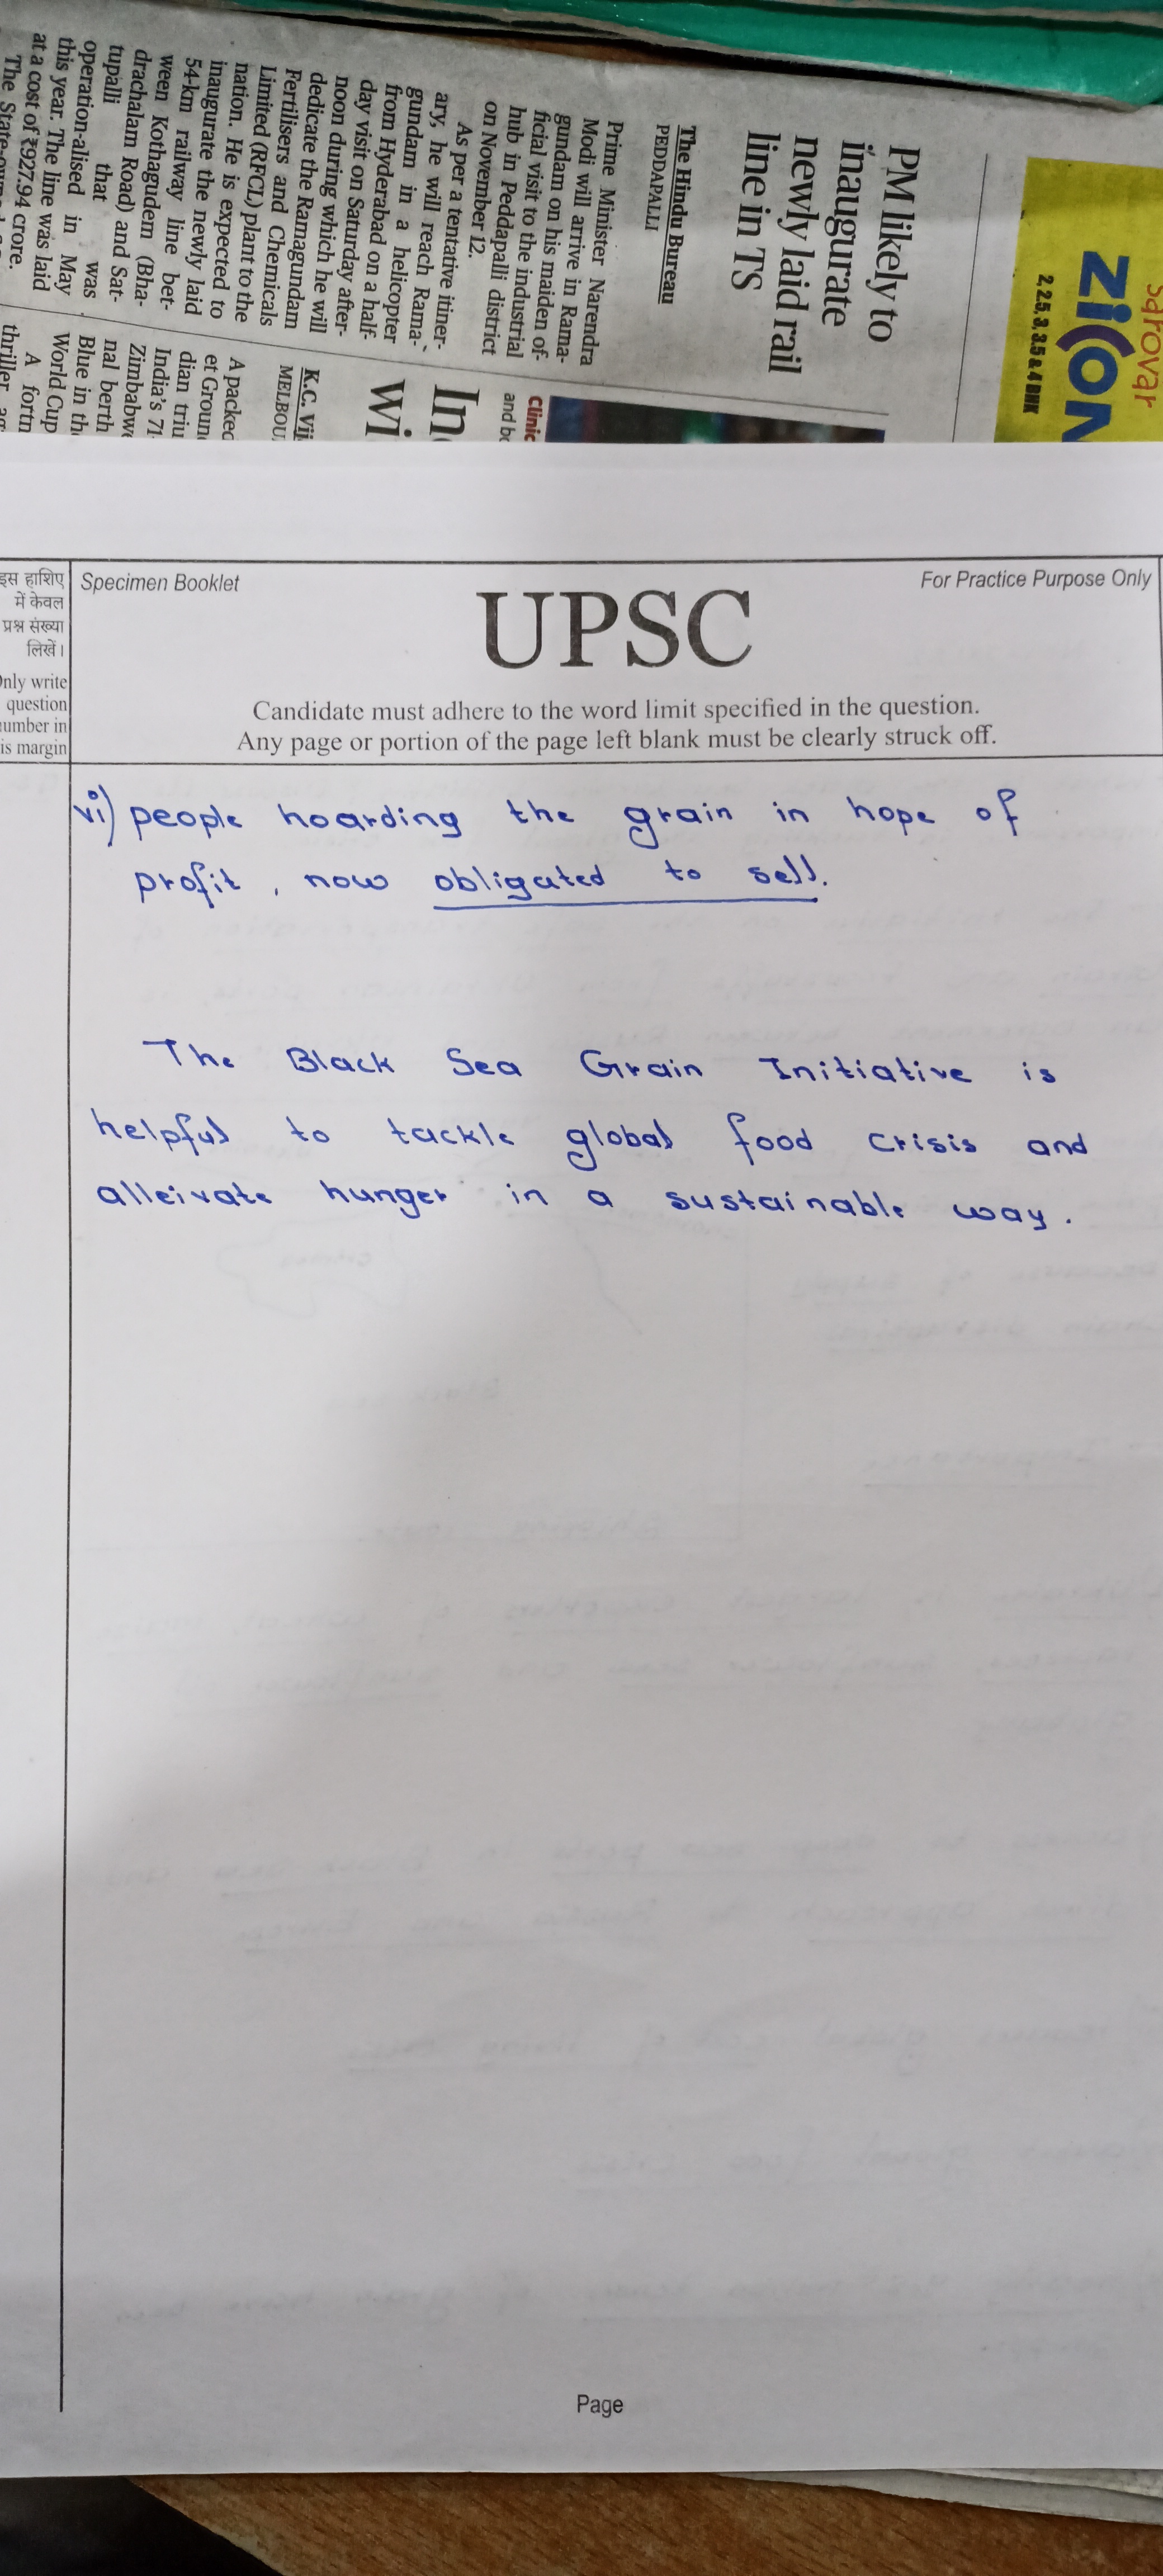 sarovar
ZiCON
2, 2.5, 3, 3.5 & 4 BHK
PM likely to
inaugurate
newly laid rail
line in TS
The Hindu Bureau
PEDDAPALLI
Prime Minister Narendra
Modi will arrive in Rama-
gundam on his maiden of-
ficial visit to the industrial
hub in Peddapalli district
on November 12.
As per a tentative itiner-
ary, he will reach Rama-
gundam in a helicopter
from Hyderabad on a half-
day visit on Saturday after-
noon during which he will
dedicate the Ramagundam
Fertilisers and Chemicals
Limited (RFCL) plant to the
nation. He is expected to
inaugurate the newly laid
54-km railway line bet-
ween Kothagudem (Bha-
drachalam Road) and Sat-
tupalli that was
operation-alised in May
this year. The line was laid
at a cost of ₹927.94 crore.
The State-own
Clinic
and bo
In
wi
K.C. Vij
MELBOU
A packed
et Groun
dian triu
India's 71
Zimbabwe
nal berth
Blue in th
World Cup
A fortn
thriller ag
इस हाशिए
में केवल
प्रश्न संख्या
लिखें।
Only write
question
number in
is margin
Specimen Booklet
For Practice Purpose Only
UPSC
Candidate must adhere to the word limit specified in the question.
Any page or portion of the page left blank must be clearly struck off.
vi) people hoarding the grain in hope of
profit, now obligated to sell.
The Black Sea Grain Initiative is
helpful to tackle global food crisis and
alleivate hunger in a sustainable way.
Page